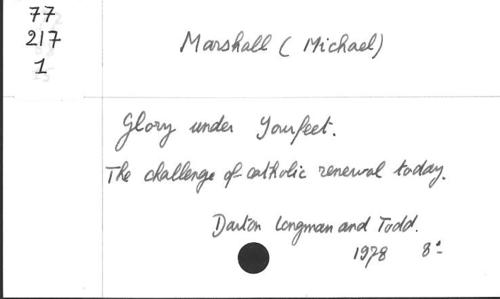 77
217
1
Marshall (Michael)
Glory under Your feet.
The challenge of catholic renewal today.
Darton Longman and Todd.
1978 8°